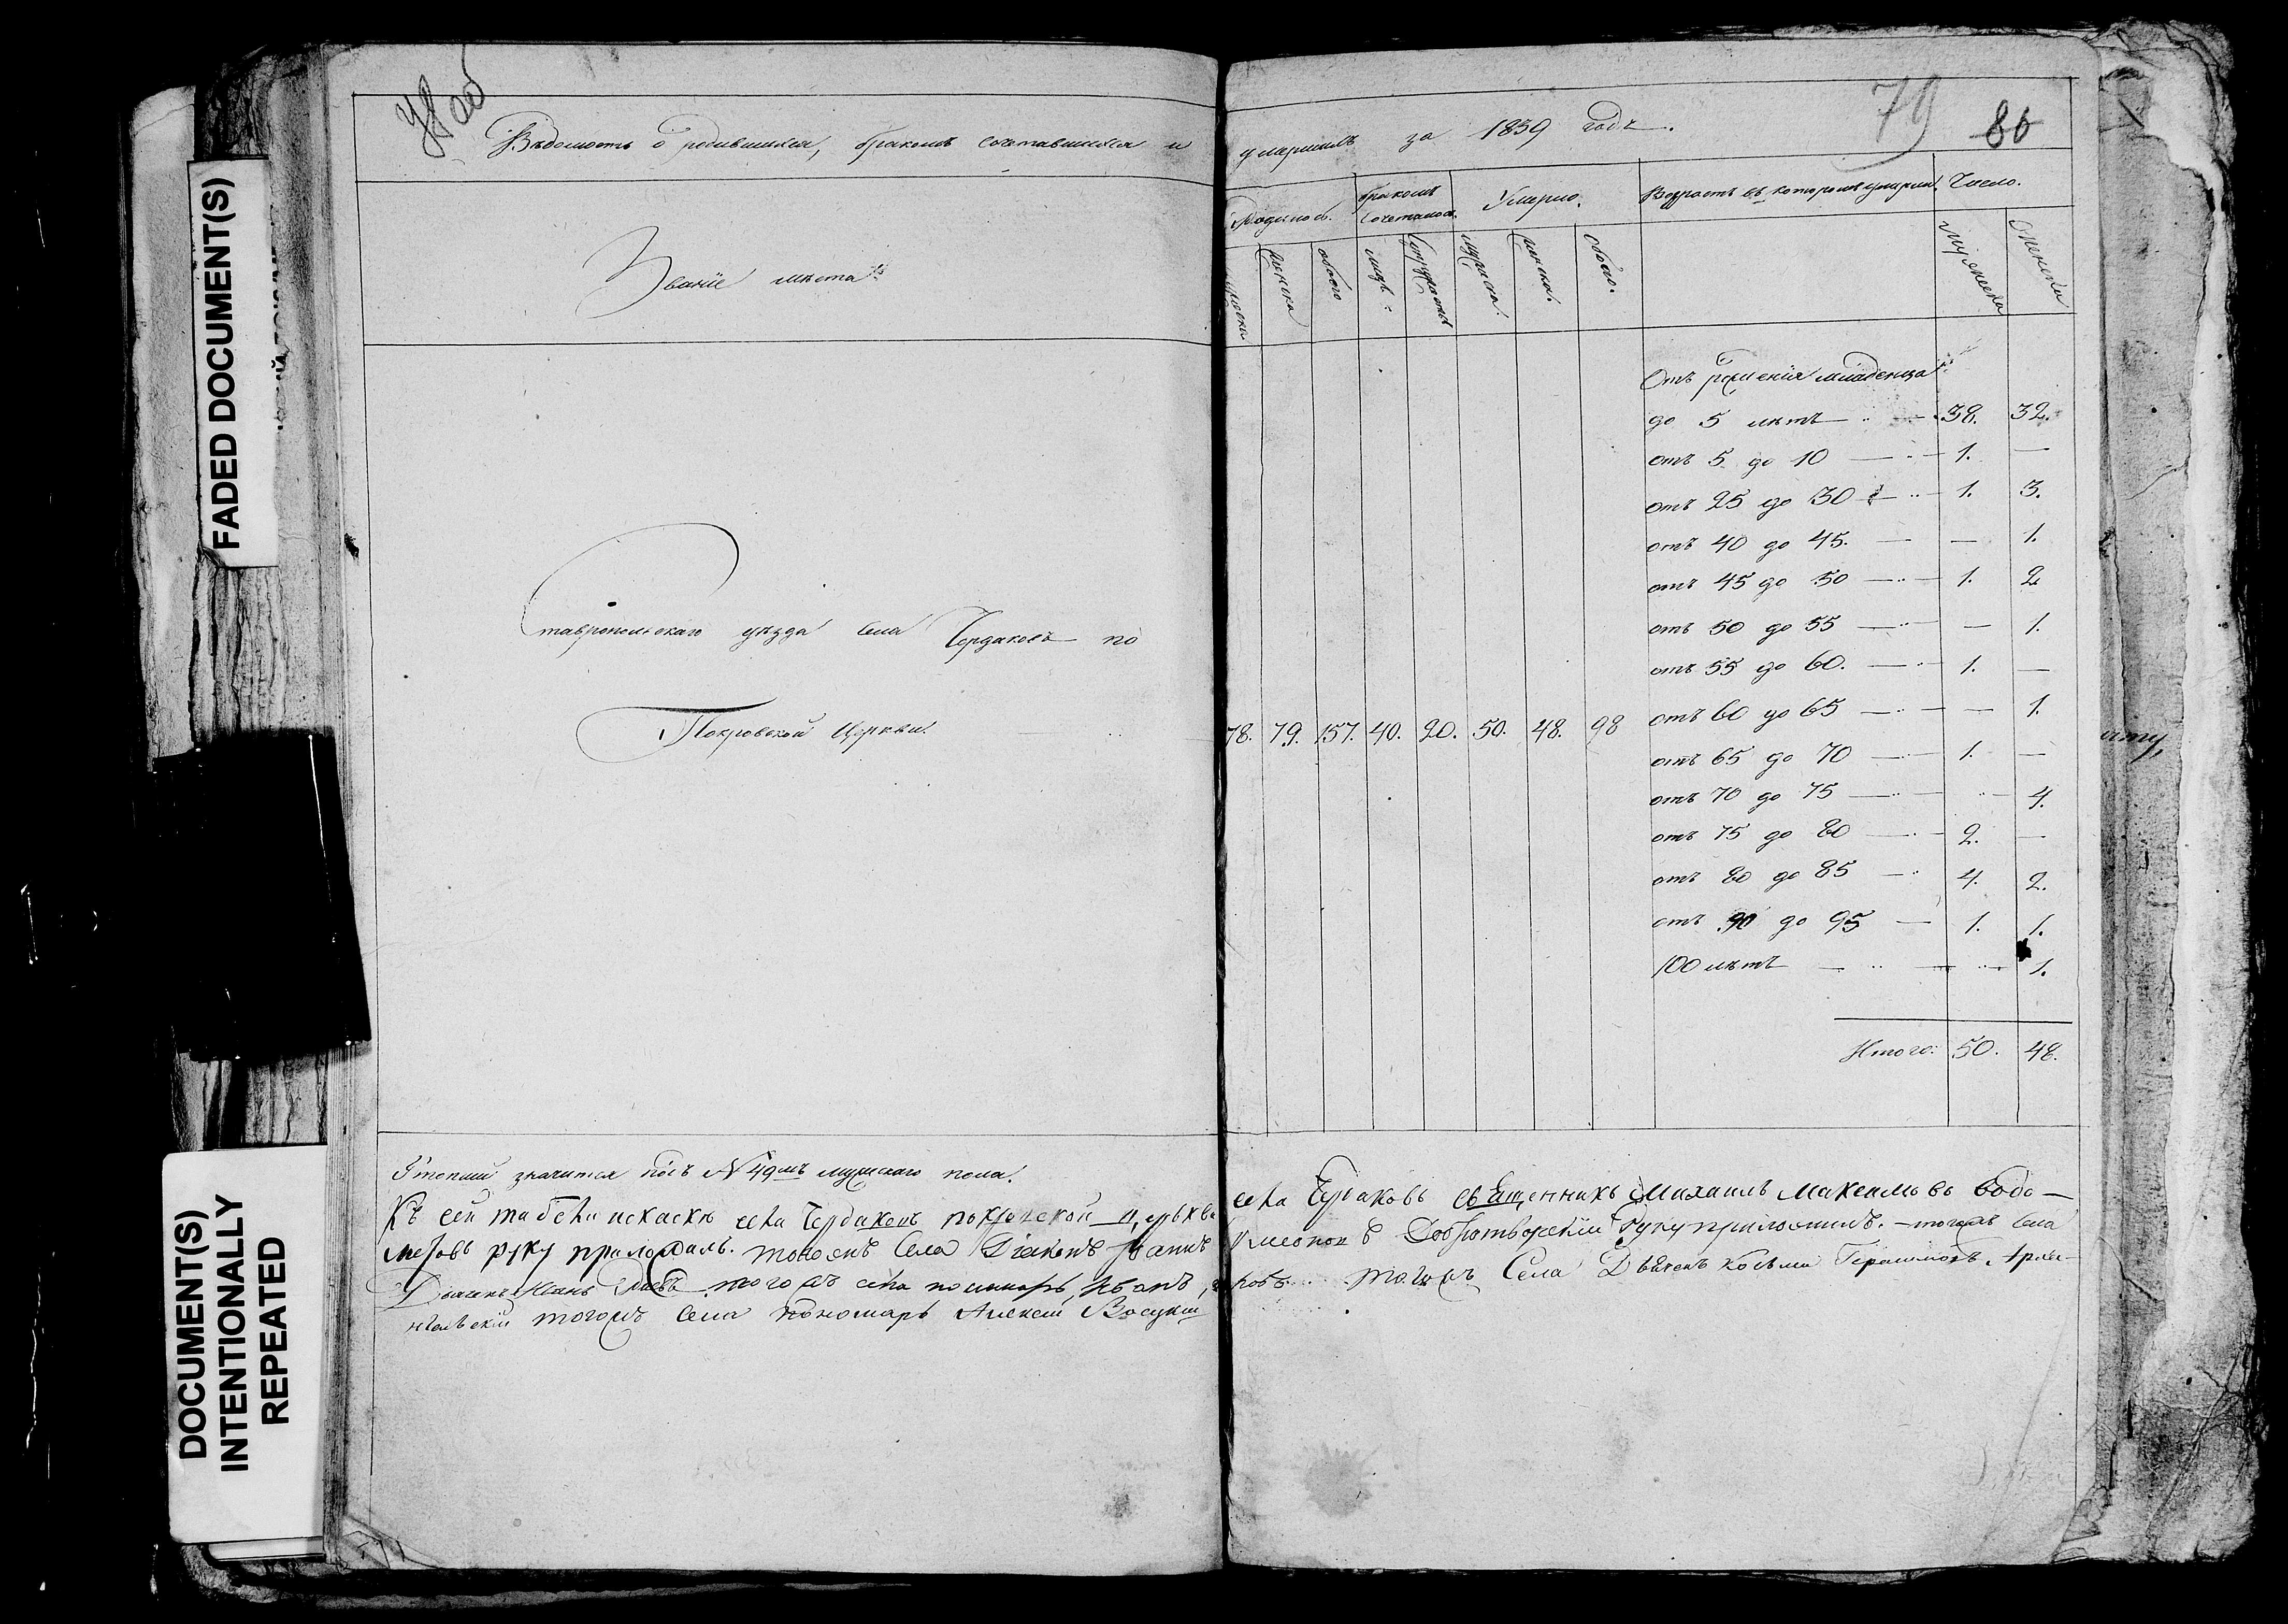 FADED DOCUMENT(S)
DOCUMENT(S)
INTENTIONALLY
REPEATED
79 80
Вѣдомость о родившихся, бракомъ сочетавшихся и умершихъ за 1839 годъ.
Званіе мѣста
Родилось. бракомъ сочеталось. Умерло. Возрастъ въ которомъ умерли. Число.
мужеска женска обоего супружества мужеска. женска. обоего. мужеска женска
Отъ рожденія младенца
до 5 лѣтъ — 38. 32.
отъ 5 до 10 — 1. —
отъ 25 до 30 — 1. 3.
отъ 40 до 45. — — 1.
отъ 45 до 50 — 1. 2
отъ 50 до 55 — — 1.
отъ 55 до 60. — 1. —
отъ 60 до 65 — — 1.
отъ 65 до 70 — 1. —
отъ 70 до 75 — — 4.
отъ 75 до 80 — 2. —
отъ 80 до 85 — 4. 2.
отъ 90 до 95 — 1. 1.
100 лѣтъ — — 1.
Итого: 50. 48.
Ставропольскаго уѣзда села Чердаковъ по
Покровской Церкви. 78. 79. 157. 40. 20. 50. 48. 98
значится подъ № 49мъ мужскаго пола.
Къ сей табели села Чердаковъ покровской церкви села Чердаковъ священникъ Михаилъ Максимовъ
руку приложилъ. тогожъ Села Діаконъ Добротворский руку приложилъ. — тогожъ Села
тогожъ села пономарь Иванъ тогожъ Села Дьячекъ Косьма Герасимовъ Архан-
гельскій тогожъ Села пономарь Алексей